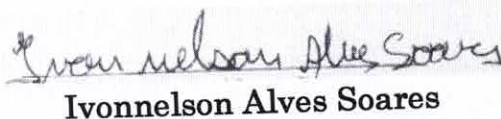 Ivon nelson Alves Soares
Ivonnelson Alves Soares